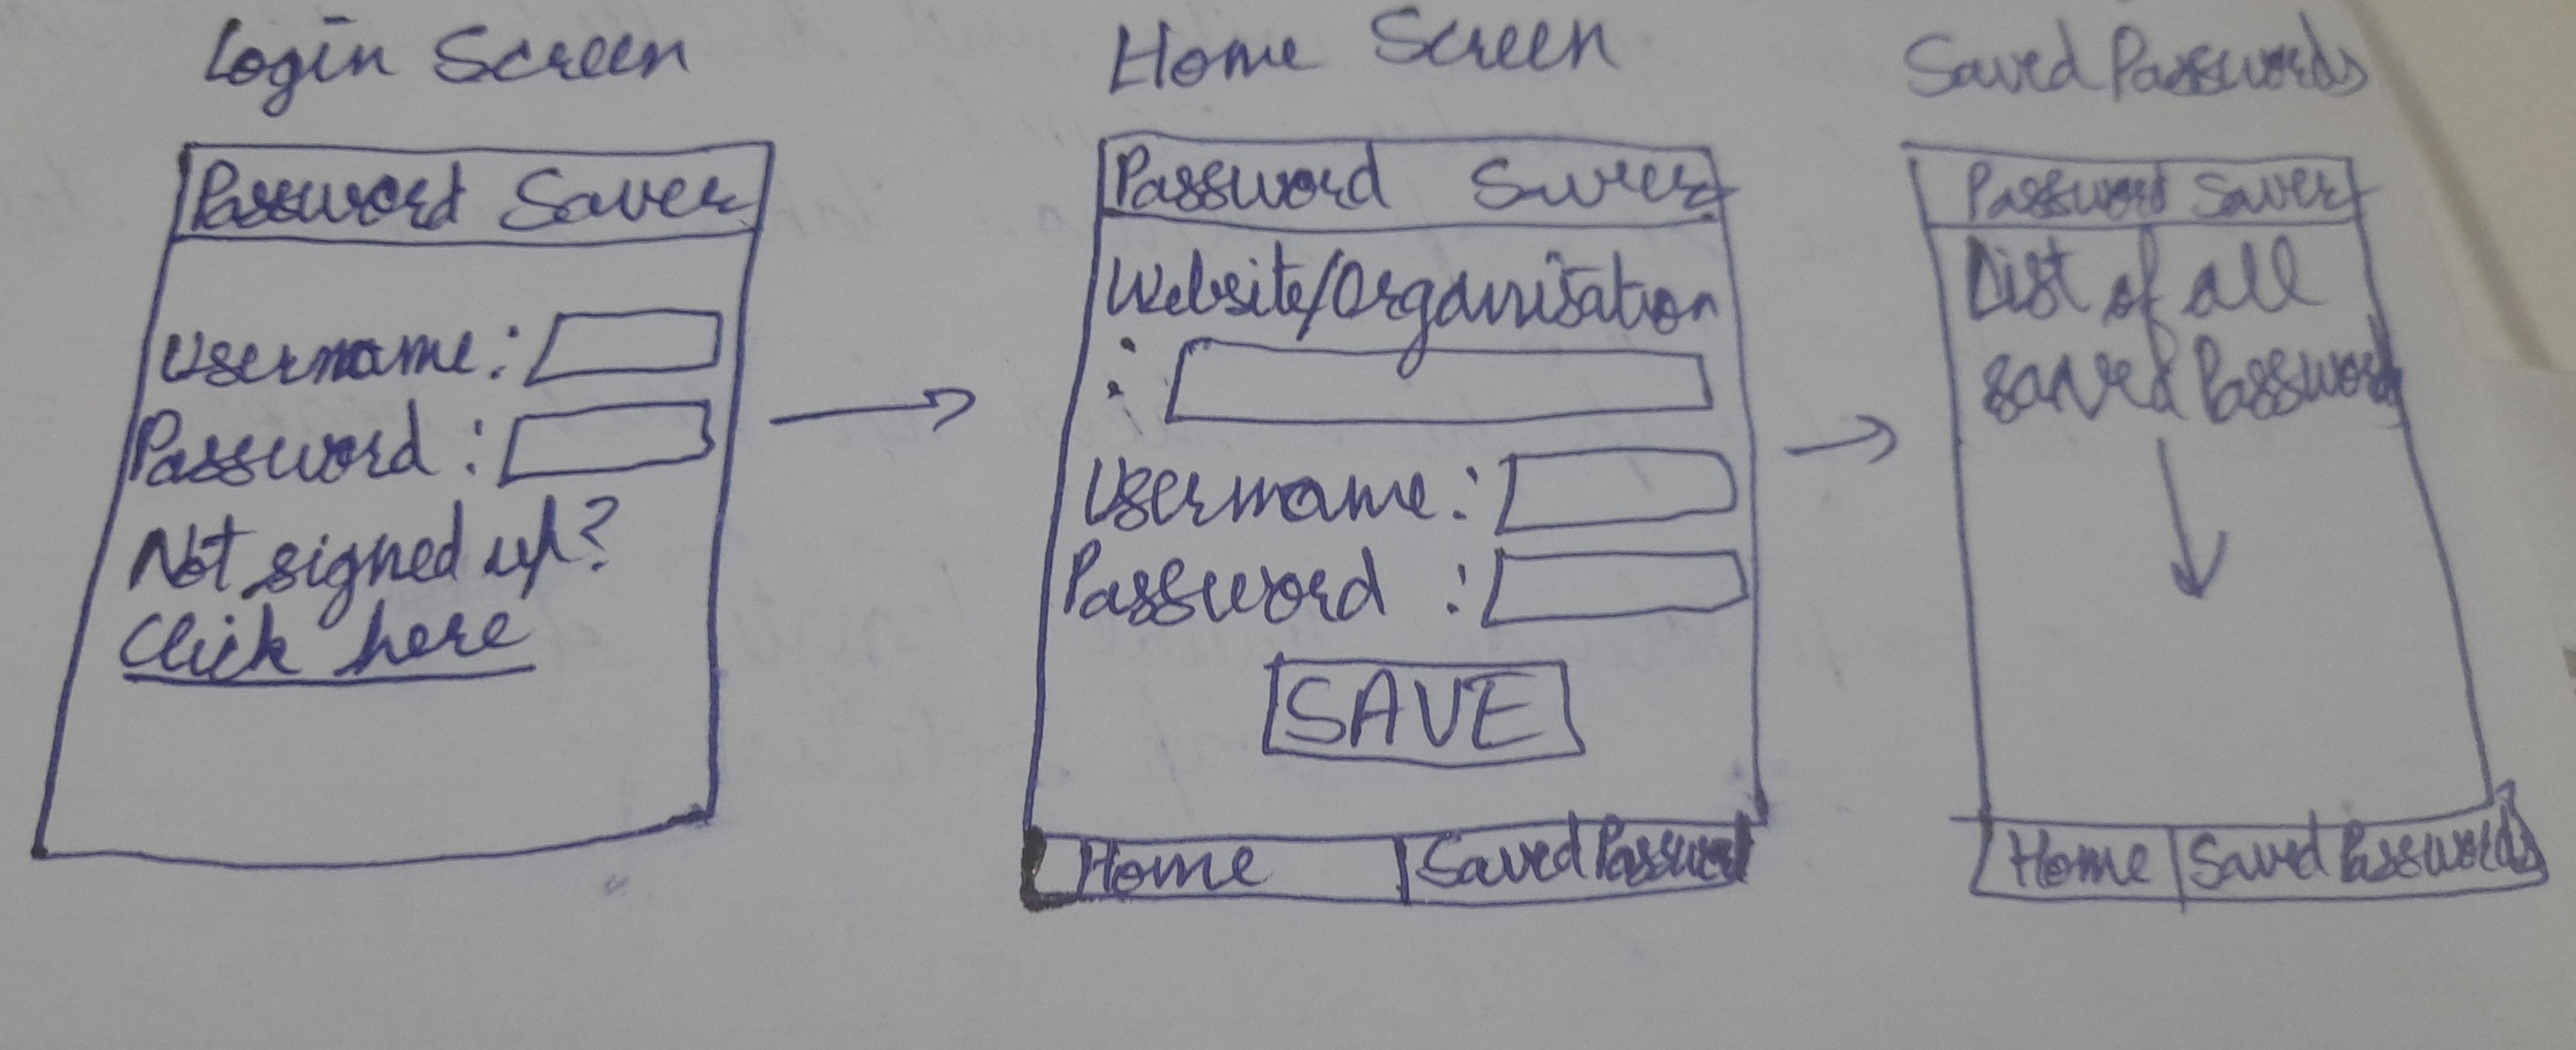 Login Screen
Password Saver
Username :
Password :
Not signed up?
Click here
Home Screen
Password Saver
Website/Organisation
:
Username :
Password :
SAVE
Home
Saved Password
Saved Passwords
Password Saver
List of all
saved Password
Home
Saved Passwords